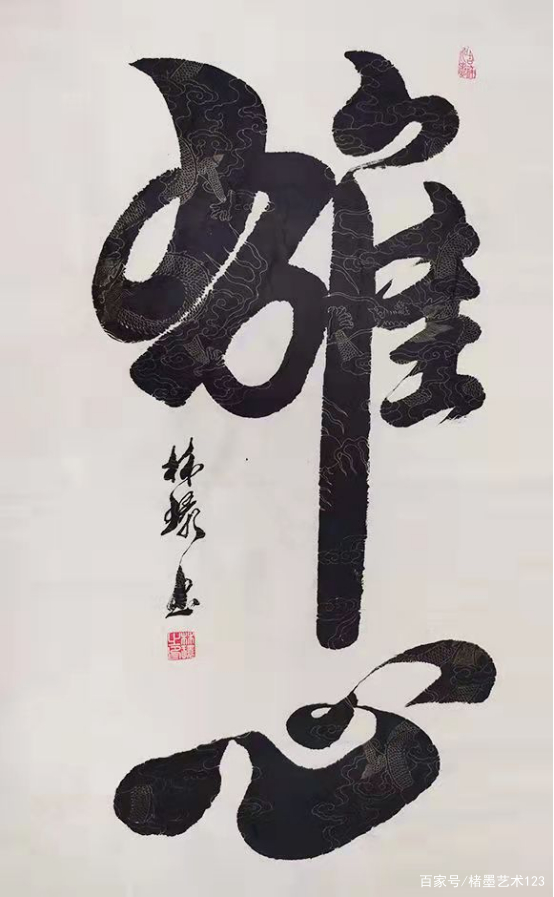 雄心
林
書
百家号/楮墨艺术123